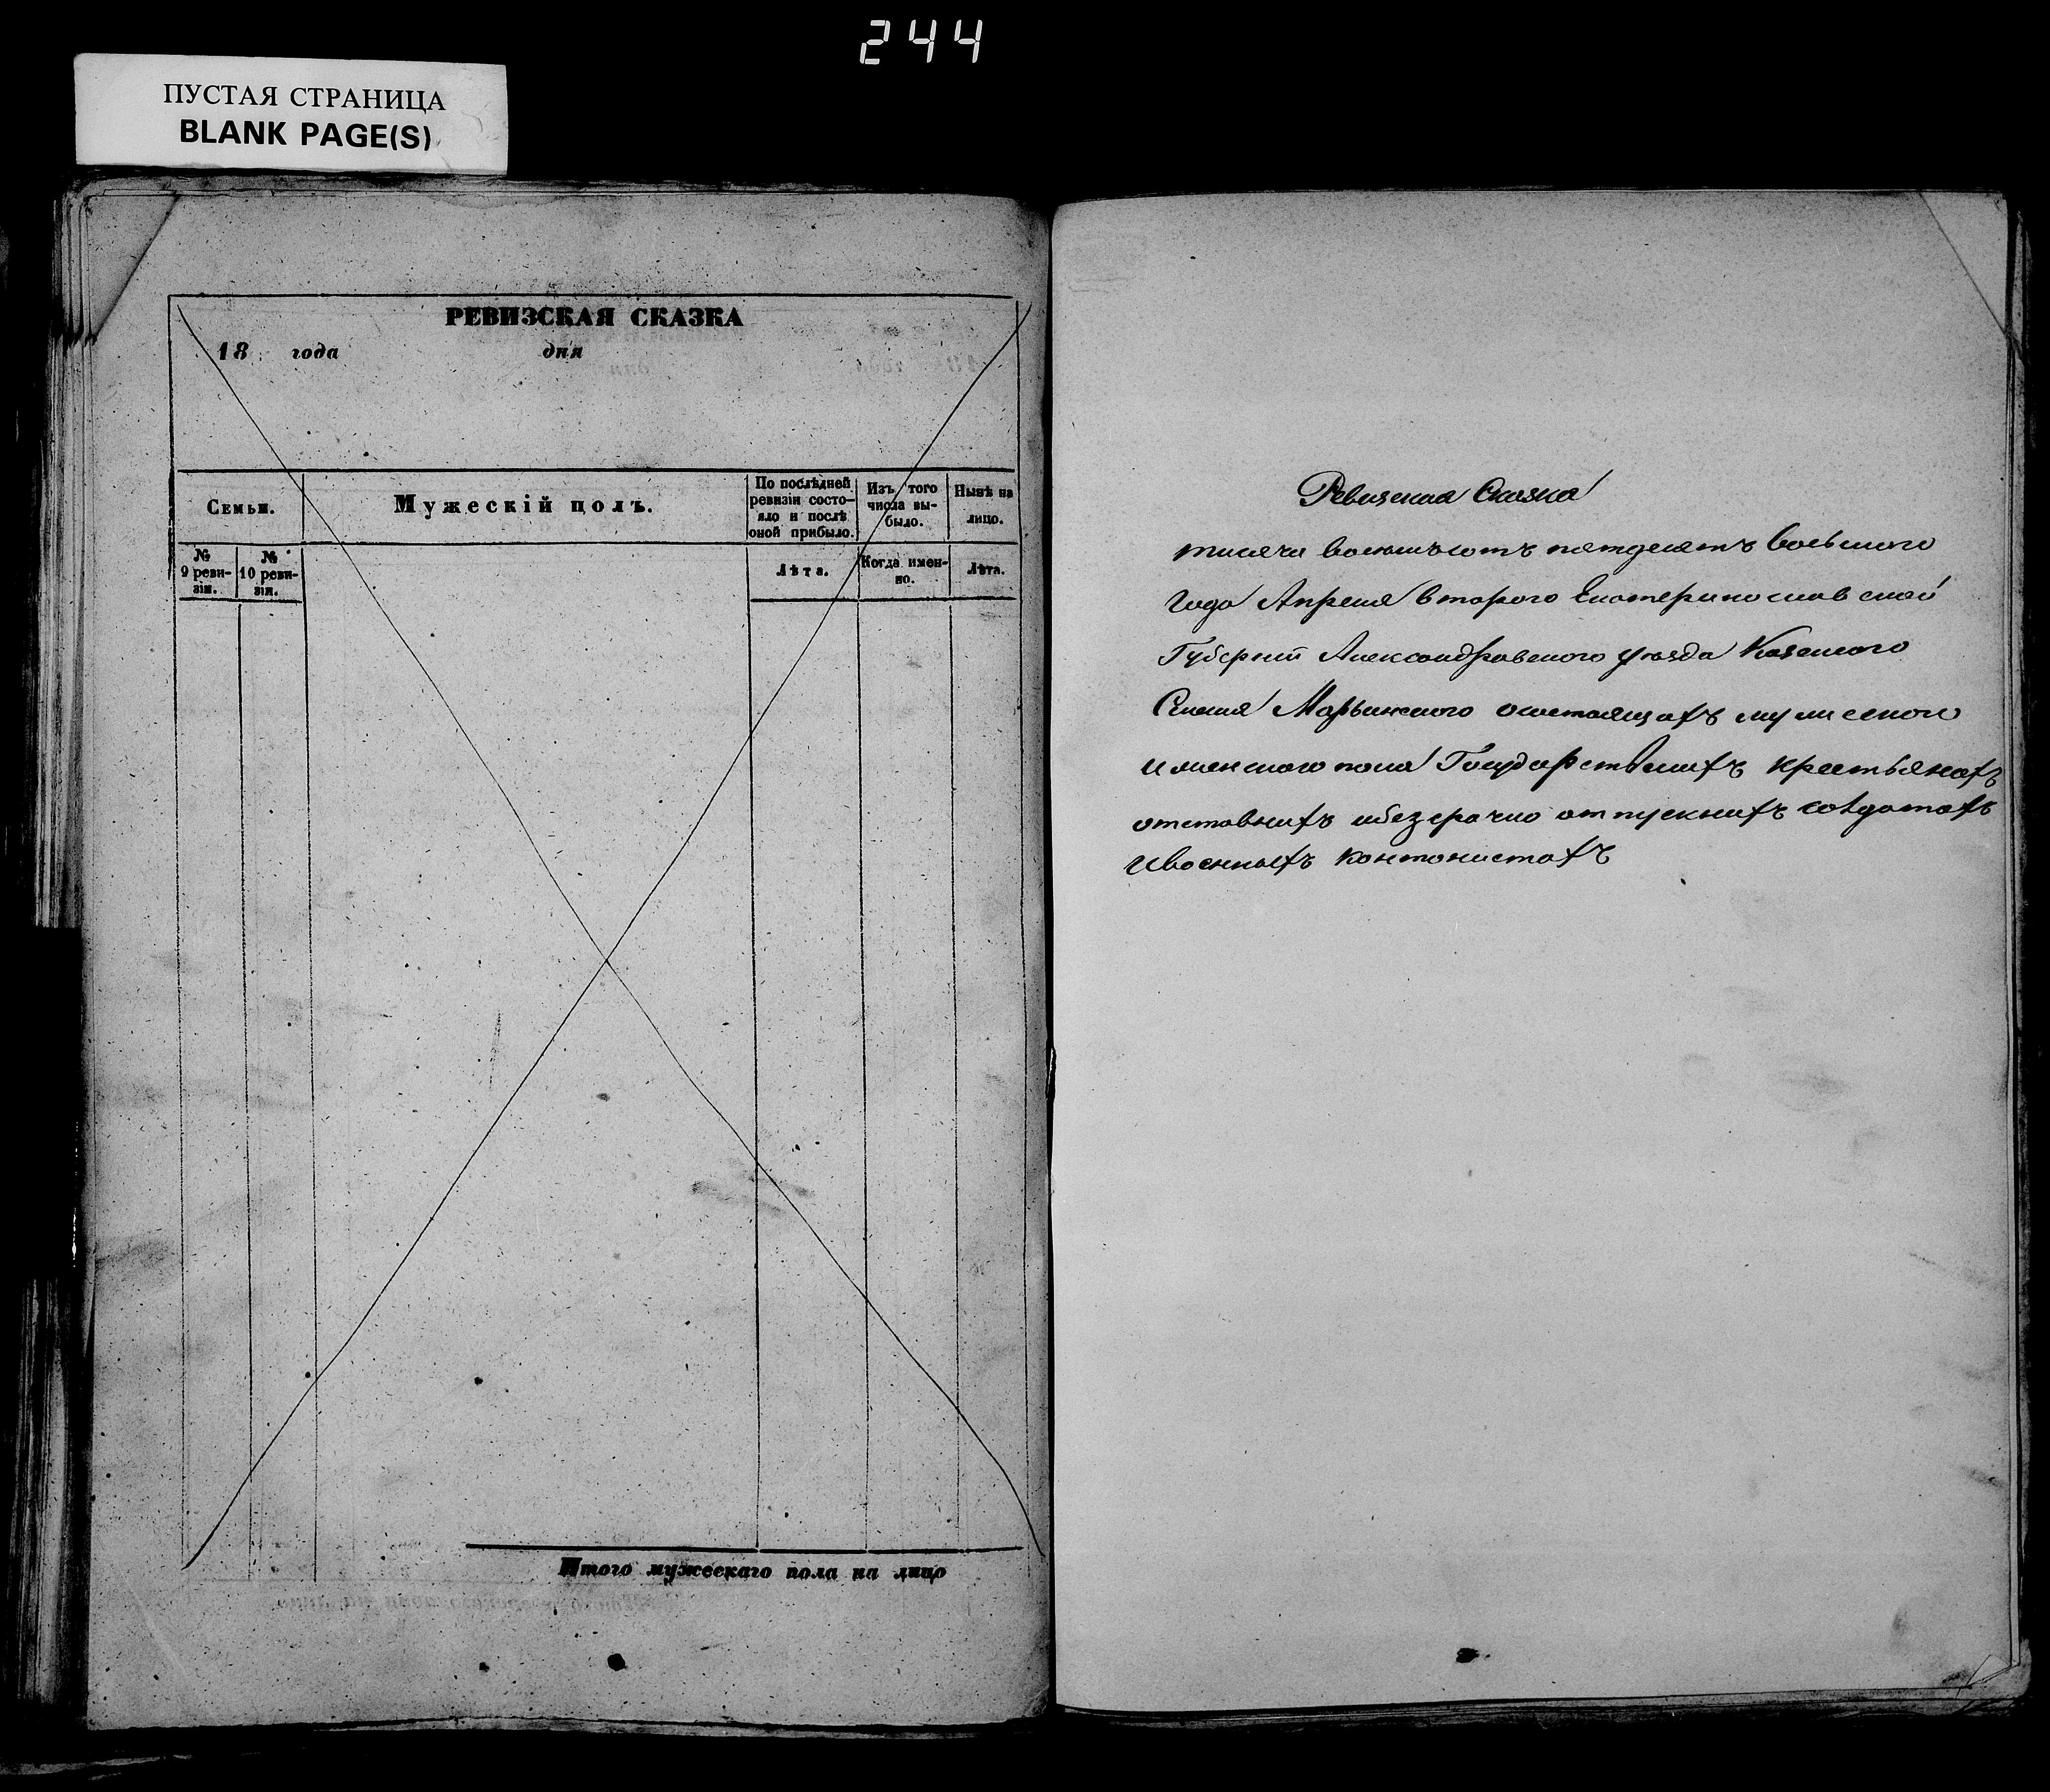 244
ПУСТАЯ СТРАНИЦА
BLANK PAGE(S)
РЕВИЗСКАЯ СКАЗКА
18 года дня
Семьи.
Мужескій полъ.
По послѣдней
ревизіи состо-
яло и послѣ
оной прибыло.
Изъ того
числа вы-
было.
Нынѣ на
лицо.
№
9 реви-
зіи.
№
10 реви-
зіи.
Лѣта.
Когда имен-
но.
Лѣта.
Итого мужескаго пола на лицо
Ревизская Сказка
тисячи восемьсотъ пятдесятъ восьмого
года Апреля второго Екатеринославской
Губерний Александравского уюзда Казенного
Селения Марьинского осостаящахъ мужеского
и женского пола Государственихъ крестьянахъ
отставнихъ ибезсрачно отпускнихъ солдатахъ
ивоенныхъ контонистахъ